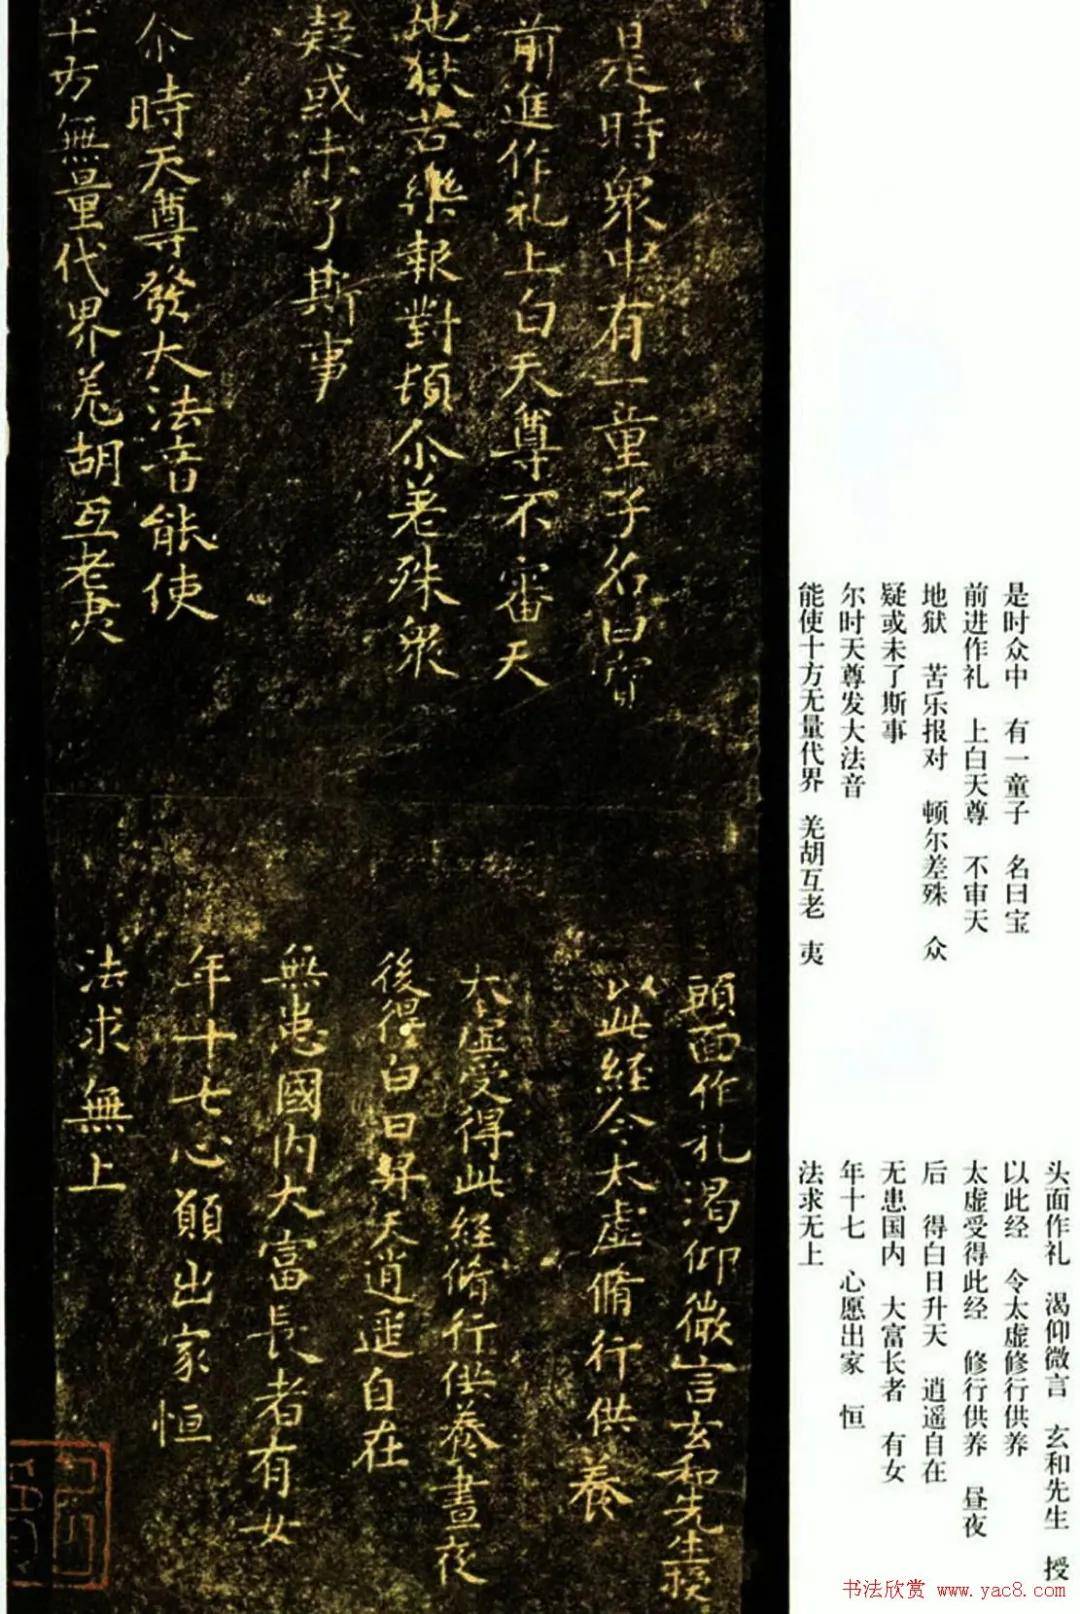 是時衆中有一童子名曰寶
前進作礼上白天尊不審天
地獄苦樂報對頓尒差殊衆
疑或未了斯事
尒時天尊發大法音能使
十方無量代界羌胡互老夷
頭面作礼渴仰微言玄和先生授
以此経令太虚脩行供養
太虚受得此経脩行供養晝夜
後得白日昇天逍遥自在
無患國内大富長者有女
年十七心願出家恒
法求無上
是时众中 有一童子 名曰宝
前进作礼 上白天尊 不审天
地狱 苦乐报对 顿尔差殊 众
疑或未了斯事
尔时天尊发大法音
能使十方无量代界 羌胡互老 夷
头面作礼 渴仰微言 玄和先生 授
以此经 令太虚修行供养
太虚受得此经 修行供养 昼夜
后 得白日升天 逍遥自在
无患国内 大富长者 有女
年十七 心愿出家 恒
法求无上
书法欣赏 www.yac8.com